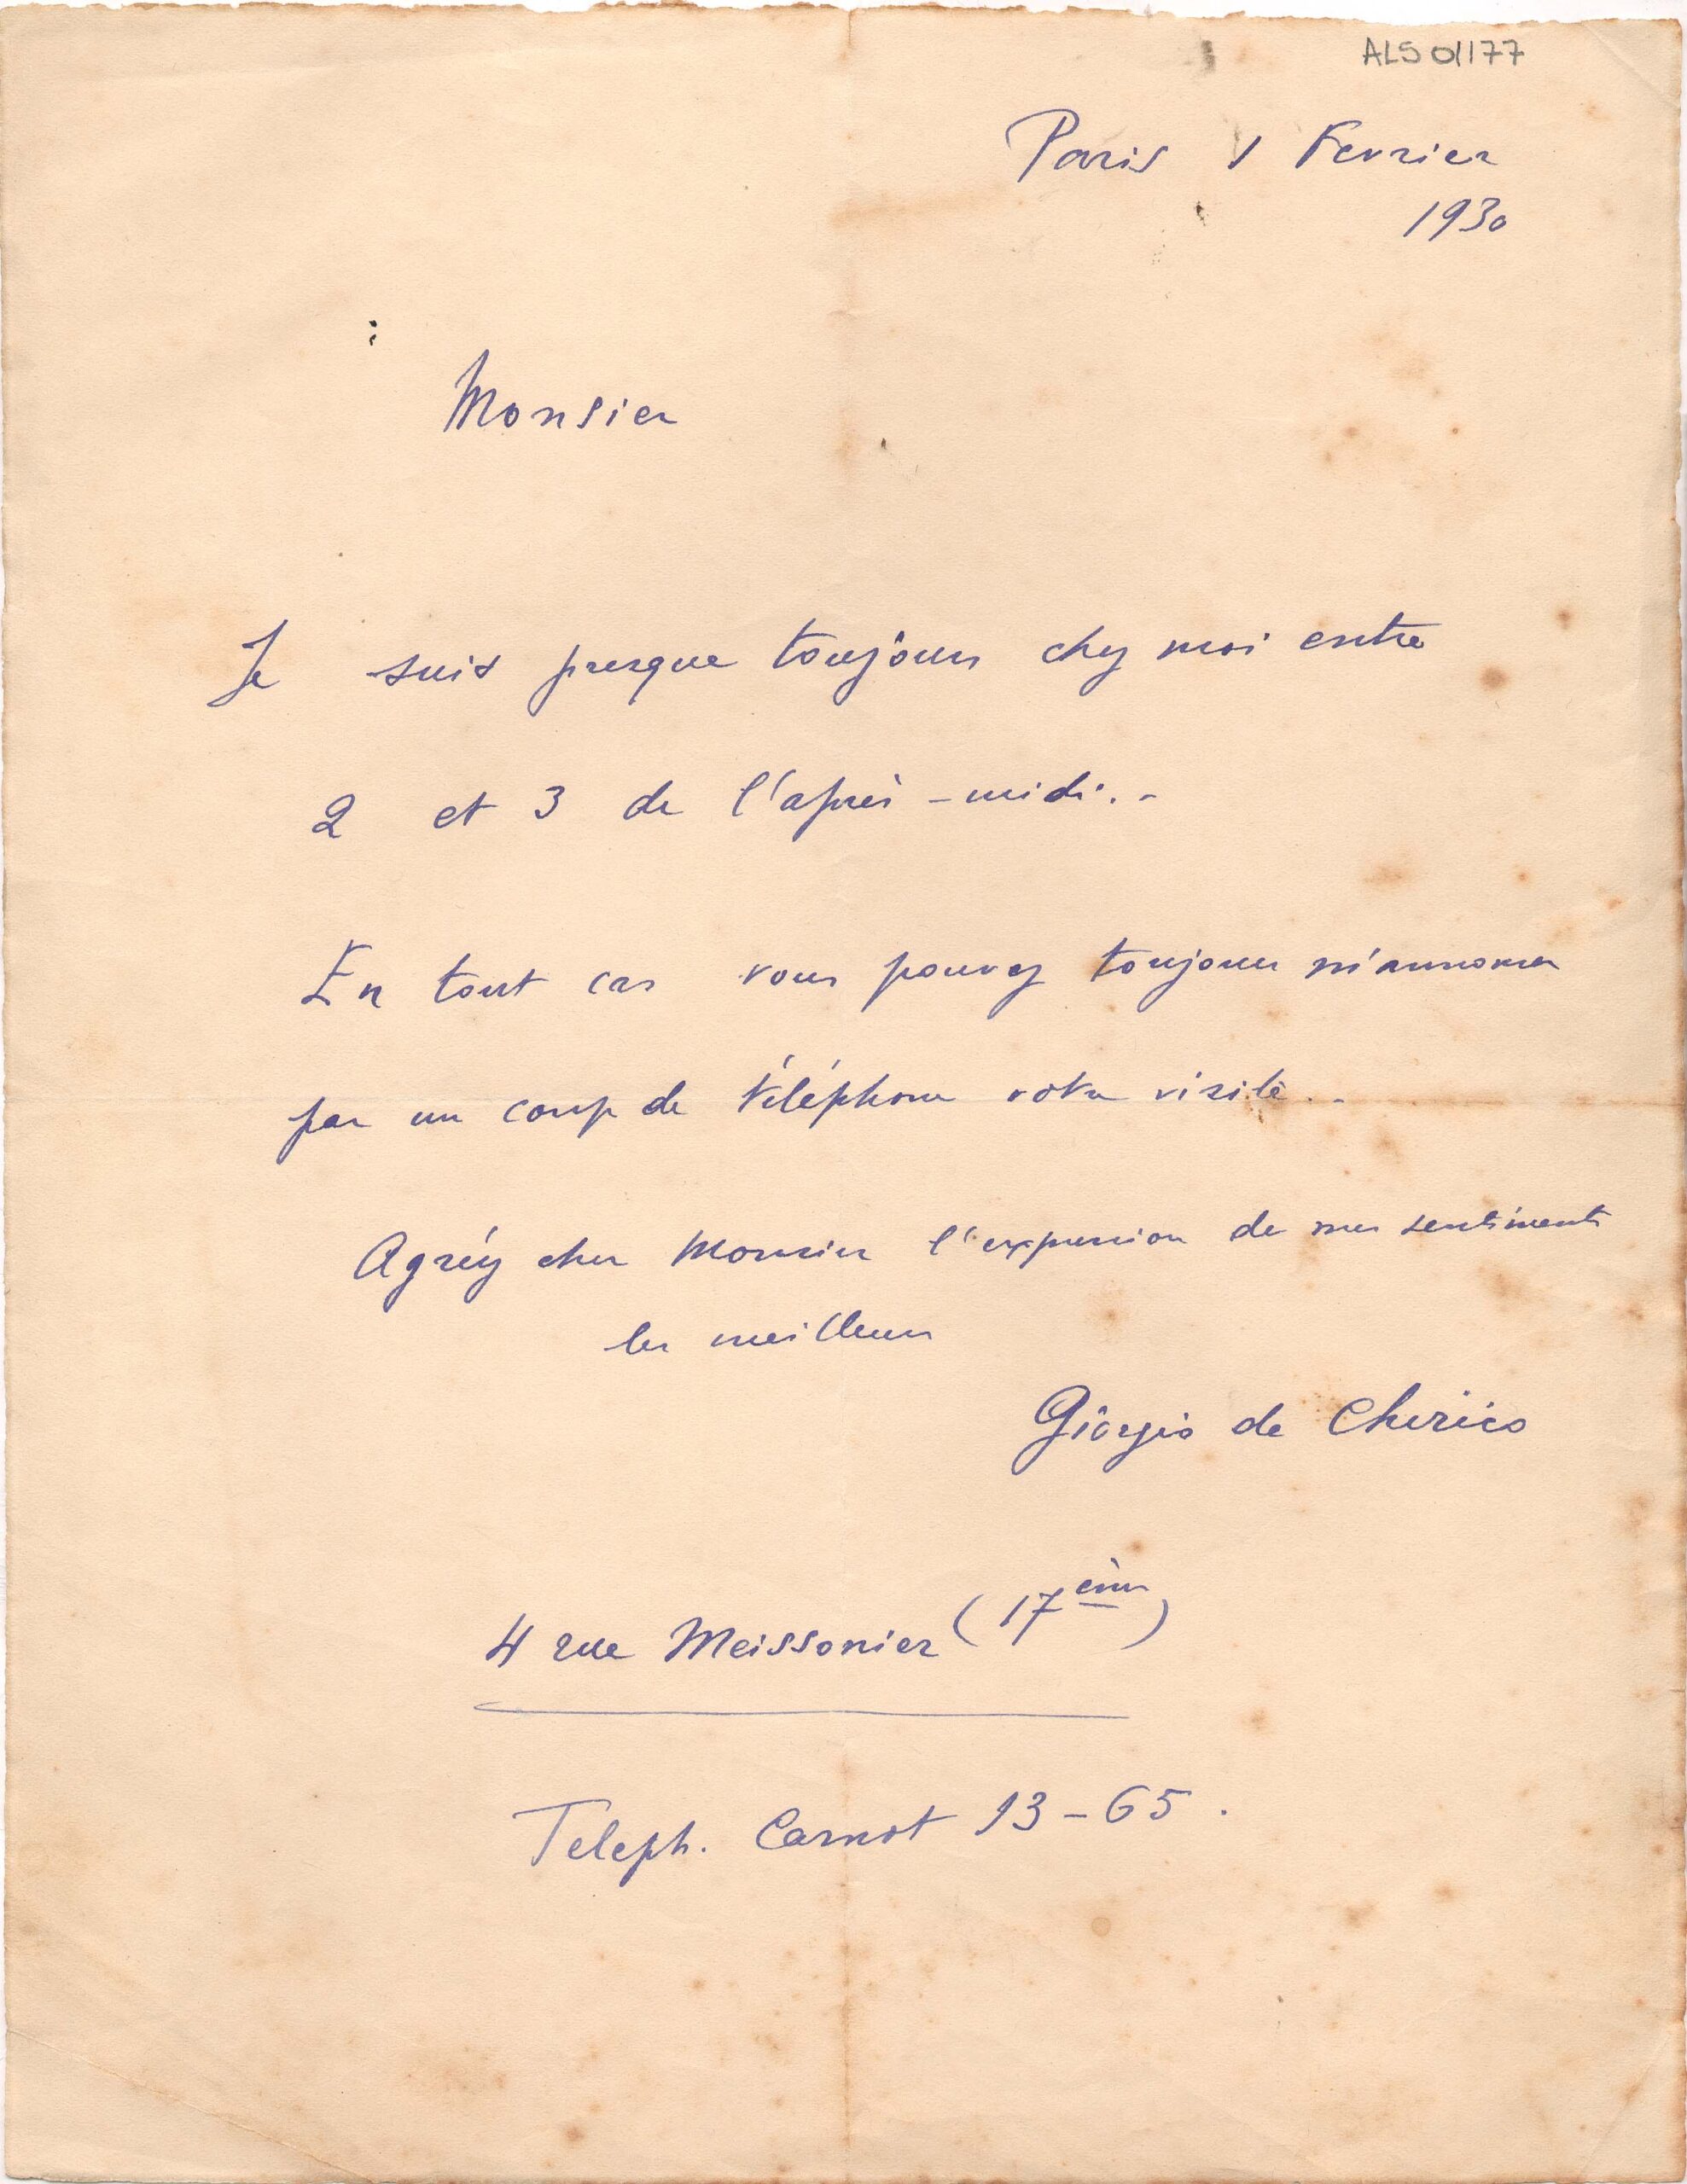 ALS 01177
Paris 1 Fevrier
1930
Monsieur
Je suis presque toujours chez moi entre
2 et 3 de l'après-midi.-
En tout cas vous pouvez toujours m'annoncer
par un coup de téléphone votre visite.-
Agréez cher Monsieur l'expression de mes sentiments
les meilleurs
Giorgio de Chirico
4 rue Meissonier (17ème)
Teleph. Carnot 13-65.